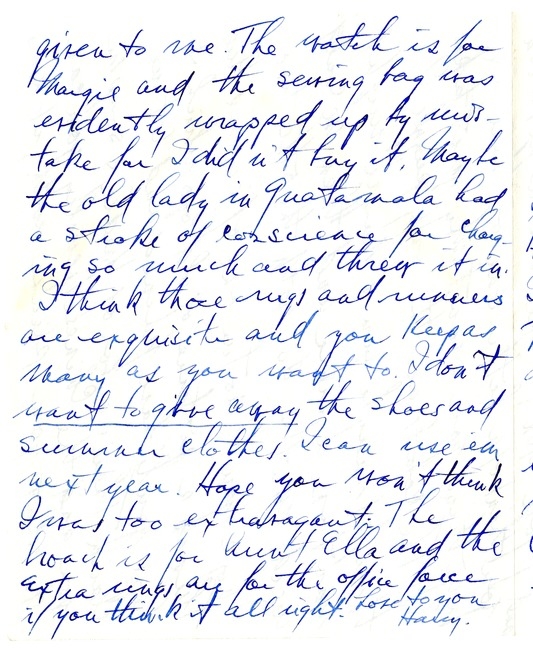 given to me. The watch is for
Margie and the sewing bag was
evidently wrapped up by mis-
take for I did n't buy it. Maybe
the old lady in Guatamala had
a stroke of conscience for charg-
ing so much and threw it in.
I think those rugs and runners
are exquisite and you Keep as
many as you want to. I don't
want to give away the shoes and
summer clothes. I can use 'em
next year. Hope you won't think
I was too extravagant. The
broach is for Aunt Ella and the
extra rings are for the office force
if you think it all right. Love to you
Harry.